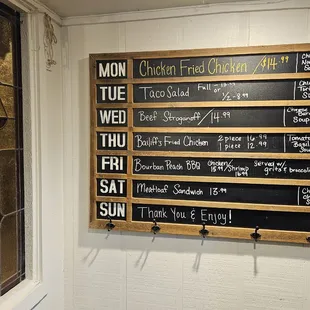 MON Chicken Fried Chicken /$14.99
TUE Taco Salad Full - 12.99 or 1/2 - 8.99
WED Beef Stroganoff / 14.99 Soup
THU Bailiff's Fried Chicken 2 piece 16.99
1 piece 12.99
FRI Bourbon Peach BBQ Chicken/Shrimp Served w/
grits & broccoli
SAT Meatloaf Sandwich 13.99
SUN Thank You & Enjoy!